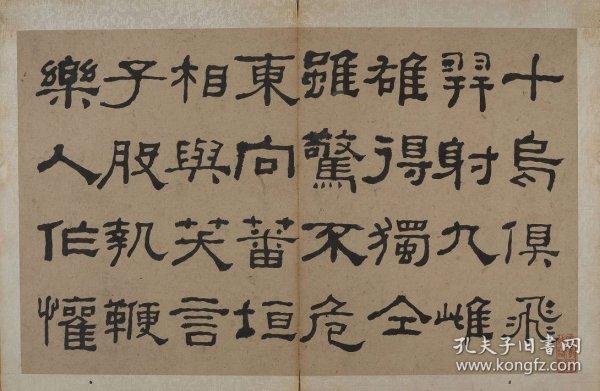 十烏俱飛
羿射九雌
雄得獨全
雖驚不危
東向蕃垣
相與笑言
子般執鞭
樂人作懽
孔夫子旧书网
www.kongfz.com